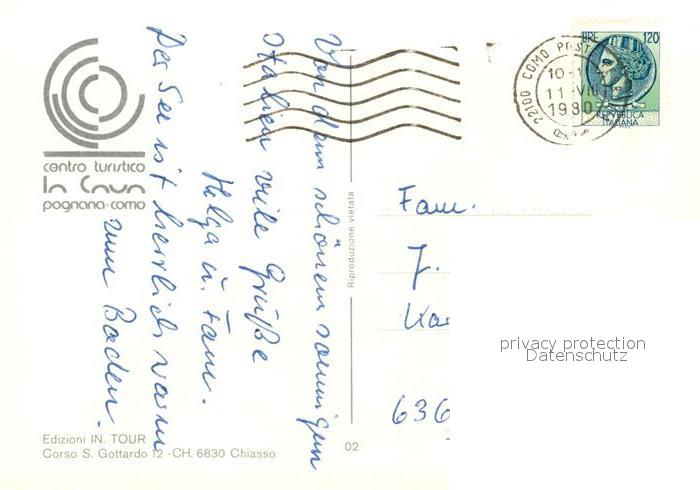 centro turistico
la cava
pognana-como
Von dem schönen sonnigen
Italien viele Grüße
Helga u. Fam.
Der See ist herrlich warm
zum Baden.
Edizioni IN. TOUR
Corso S. Gottardo 12 - CH. 6830 Chiasso
02
Riproduzione vietata
LIRE 120
REPVBBLICA
ITALIANA
22100 COMO POST
1980
Fam.
J.
636
privacy protection
Datenschutz